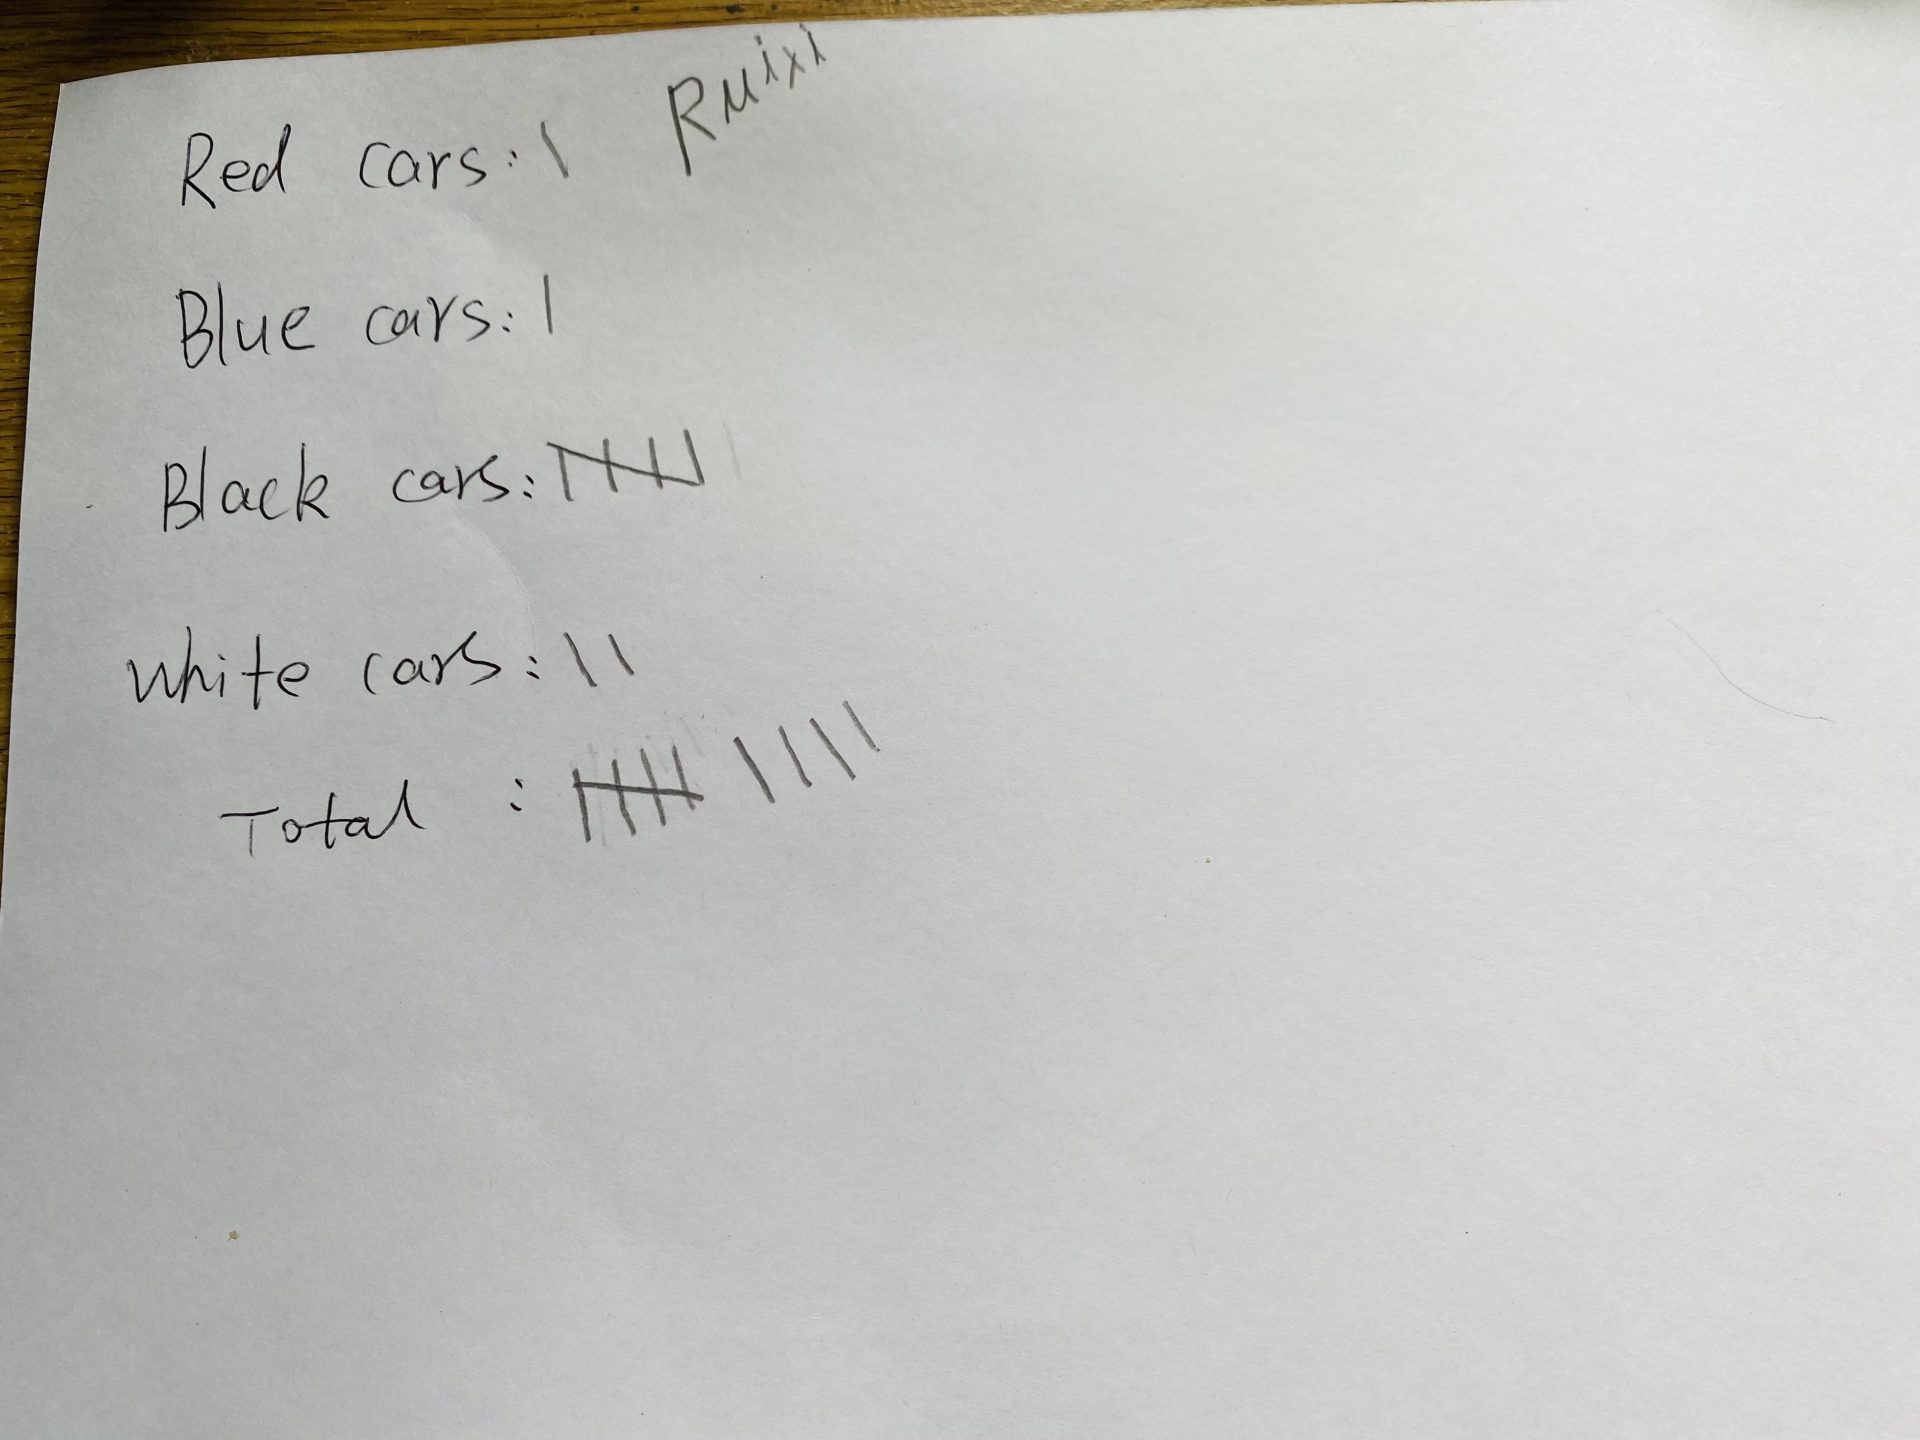 Red cars: | Ruixi
Blue cars: |
Black cars: 卌
White cars: ||
Total : 卌 ||||